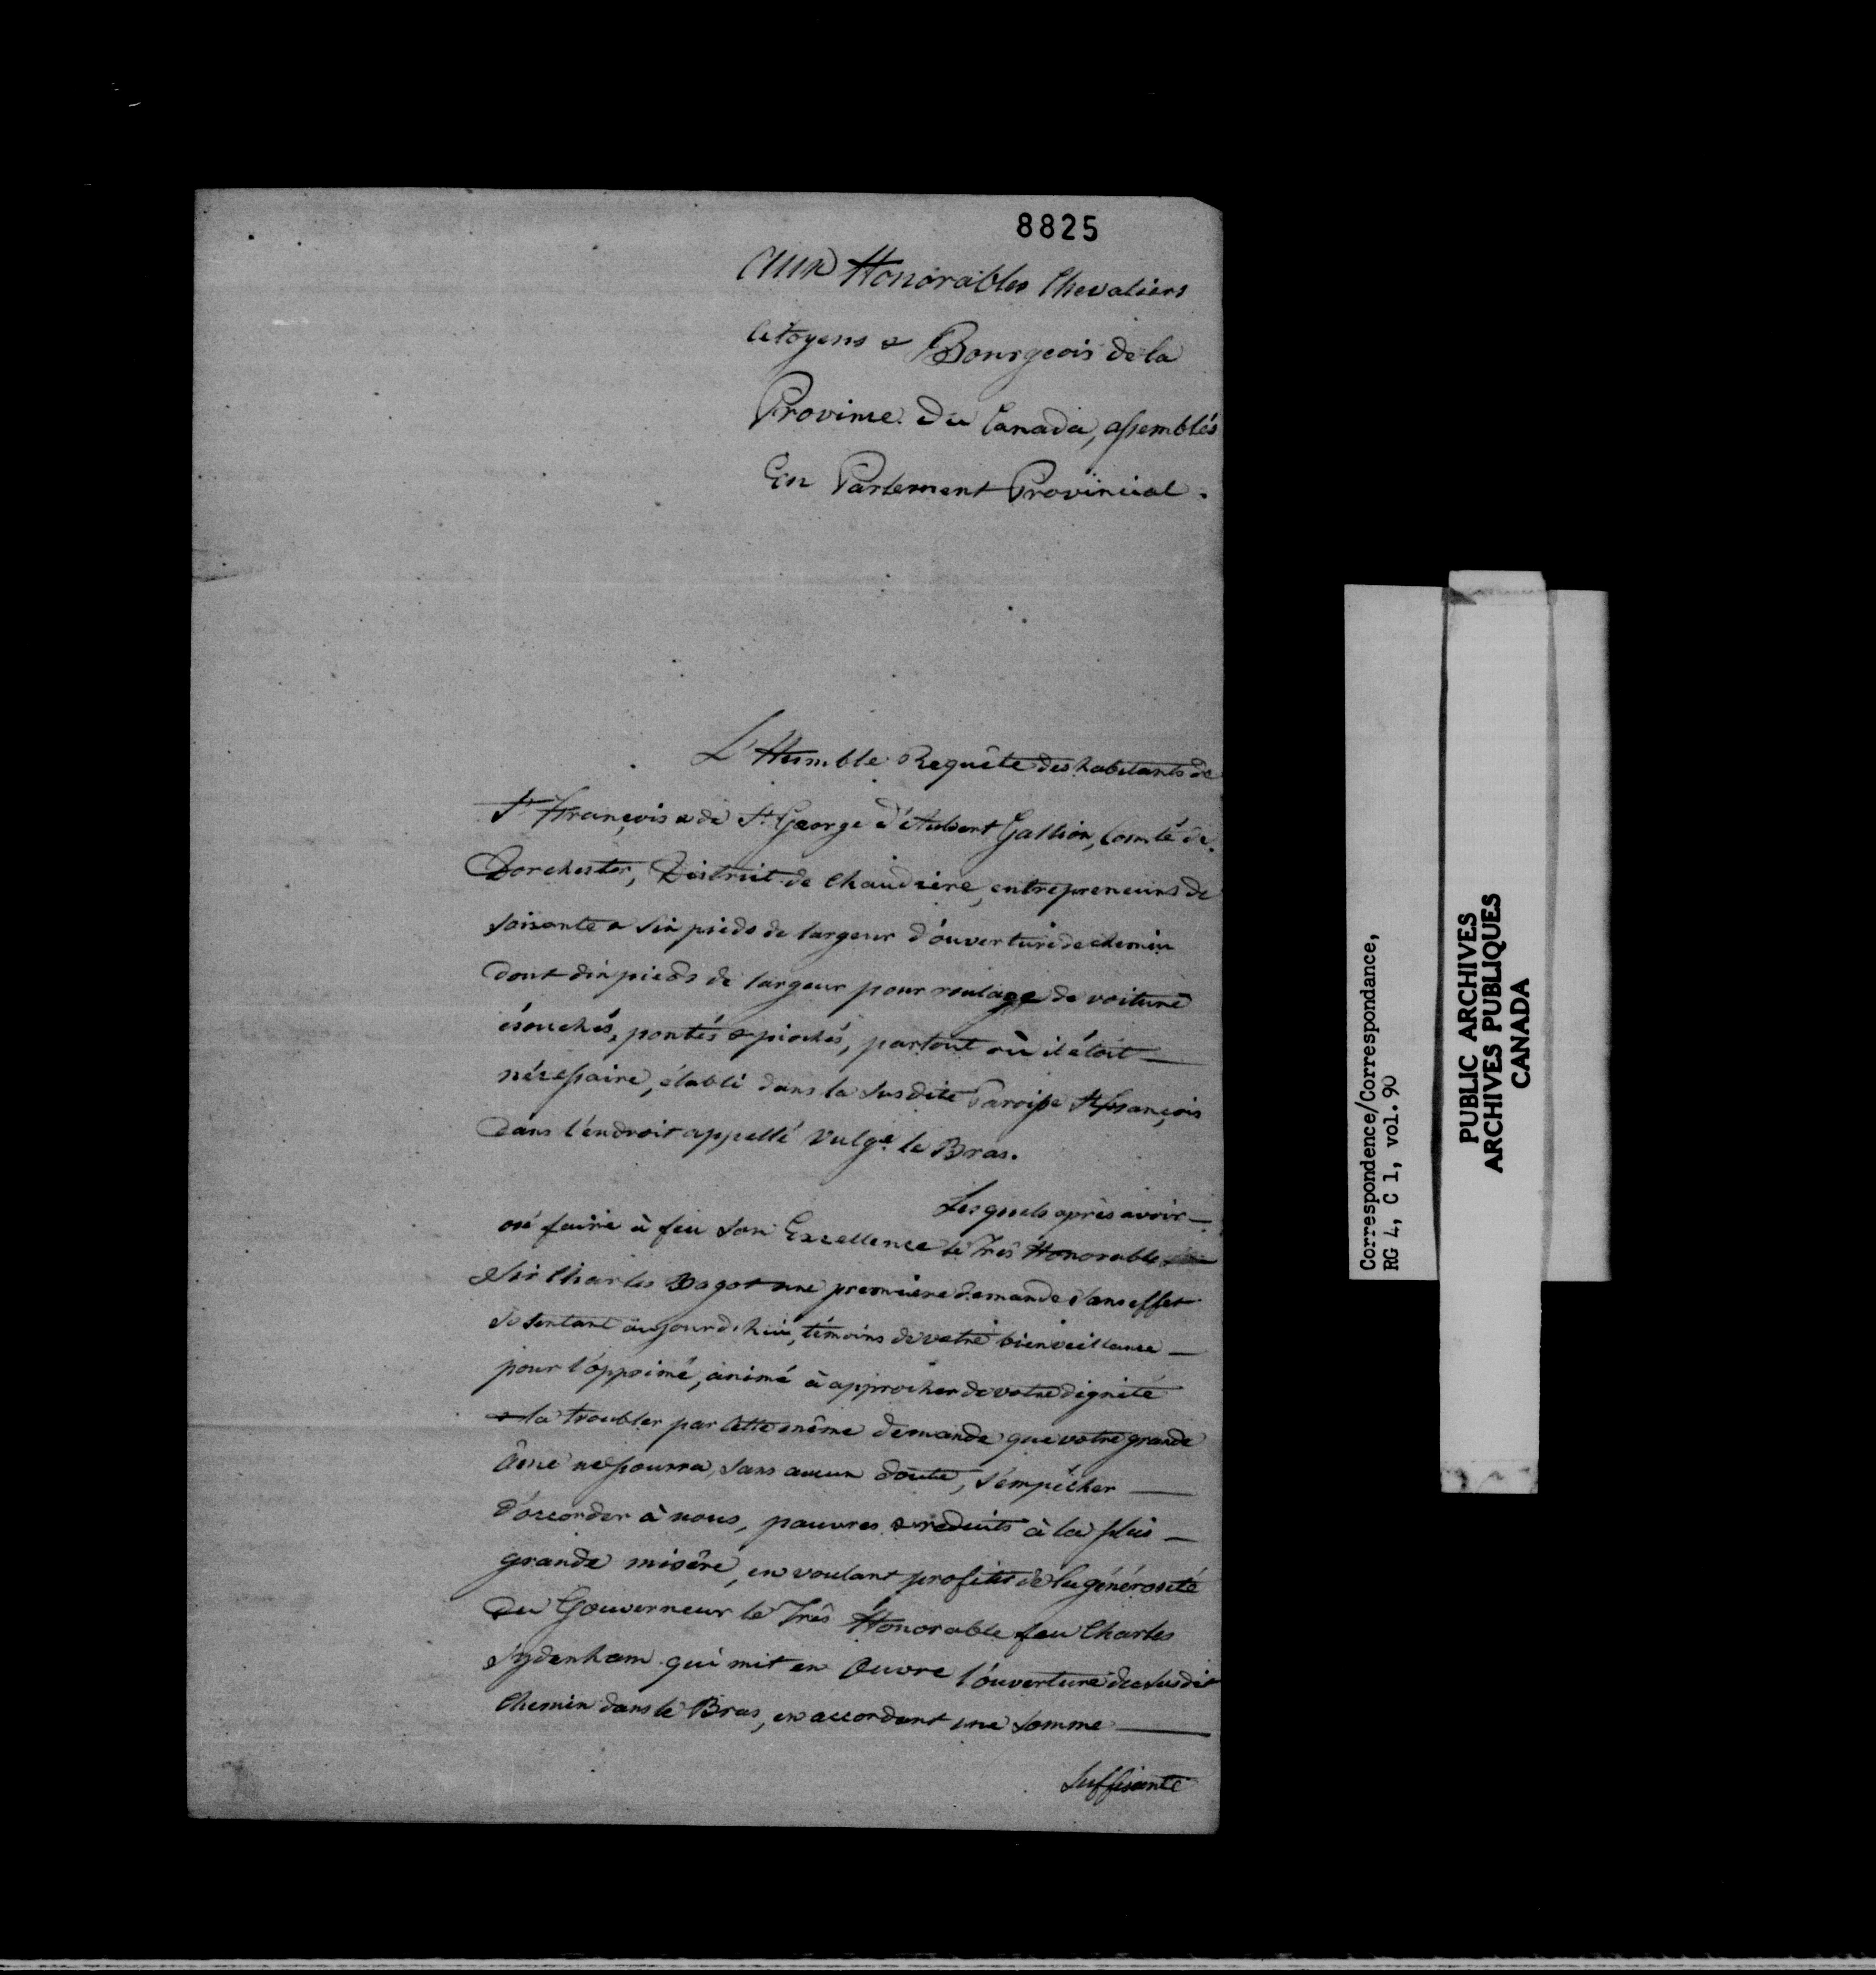 8825
Aux Honorables Chevaliers
Citoyens & Bourgeois de la
Province du Canada, assemblés
En Parlement Provincial.
L'Humble Requête des habitants de
St François & de St George d'Aubert Gallion, Comté de
Dorchester, District de Chaudière, entrepreneurs de
soixante & six pieds de largeur d'ouverture de chemin
dont dix pieds de largeur pour roulage de voiture
ésouchés, pontés & piochés, partout où il étoit
nécessaire, établi dans la susdite Paroisse St François
Dans l'endroit appellé Vulgt le Bras.
Lesquels après avoir
osé faire à feu Son Excellence le Très Honorable
Sir Charles Bagot une première demande sans effet
se sentant aujourd'hui, témoins de votre bienveillance
pour l'opprimé, animé à approcher de votre dignité
& la troubler par cette même demande que votre grande
âme ne pourra, sans aucun doute, s'empêcher
d'accorder à nous, pauvres & reduits à la plus
grande misère, en voulant profiter de la générosité
du Gouverneur le Très Honorable feu Charles
Sydenham qui mit en Œuvre l'ouverture du susdit
Chemin dans le Bras, en accordant une somme
suffisante
Correspondence/Correspondance,
RG 4, C 1, vol. 90
PUBLIC ARCHIVES
ARCHIVES PUBLIQUES
CANADA